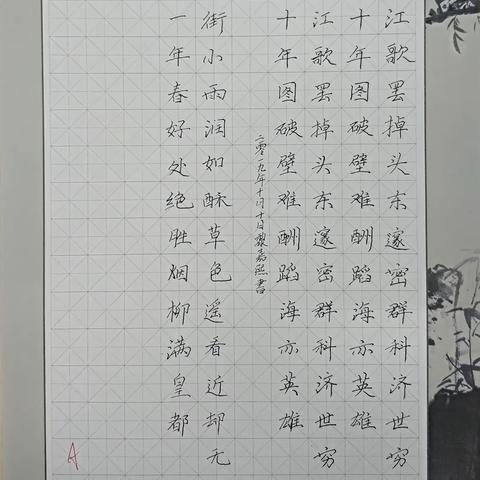 江歌罢掉头东邃密群科济世穷
十年图破壁难酬蹈海亦英雄
江歌罢掉头东邃密群科济世穷
十年图破壁难酬蹈海亦英雄
二零一九年十月十日嘉熙書
街小雨润如酥草色遥看近却无
一年春好处绝胜烟柳满皇都
A